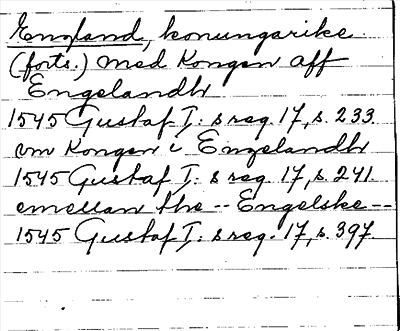 England, konungarike
(forts.) med Kongen aff
Engelandh
1545 Gustaf I: s reg. 17, s. 233
om Kongen i Engelandh
1545 Gustaf I: s reg. 17, s. 241
emellan the -- Engelske --
1545 Gustaf I: s reg. 17, s. 397